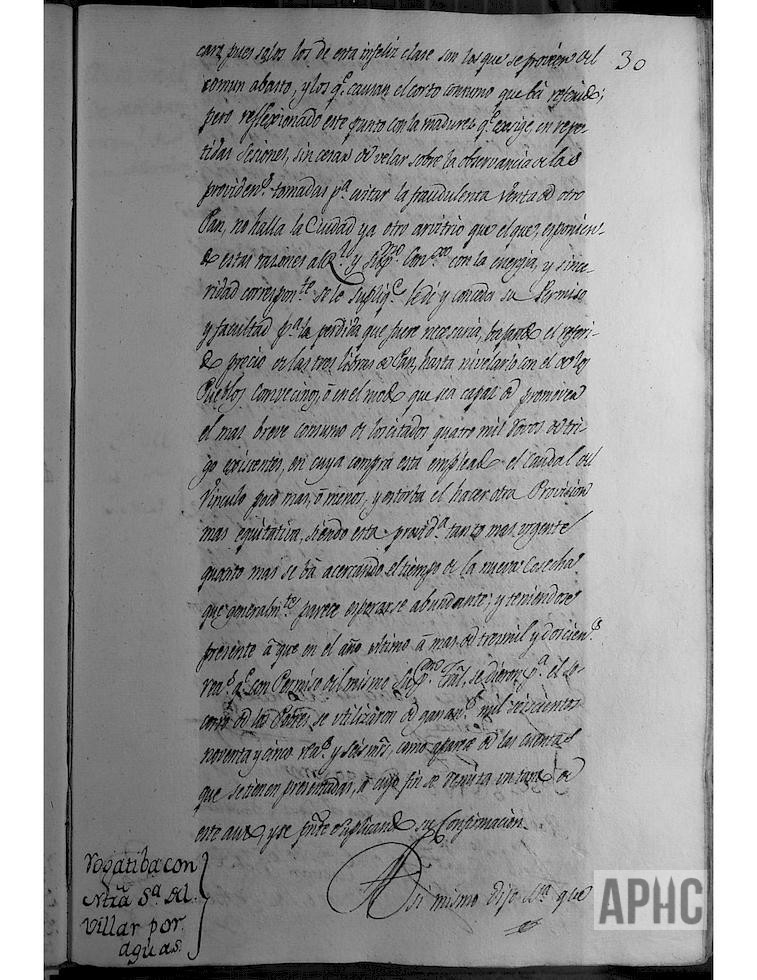 30
cará, pues solos los de esta infeliz clase son los que se proveen del
comun abasto, y los q.e causan el corto consumo que bá referido;
pero reflexionado este punto con la madurez q.e exige, en repe-
tidas Sesiones, sin cesar de velar sobre la observancia de las
providen.s tomadas p.a evitar la fraudulenta venta de otro
Pan, no halla la Ciudad ya otro arvitrio que el que, exponien-
do estas razones al R.l y Sup.mo Con.xo con la energia, y since-
ridad correspon.te se le supliq.e le dé y conceda su Permiso
y facultad p.a la perdida que fuere necesaria, bajando el referi-
do precio de las tres libras de Pan, hasta nivelarlo con el de los
Pueblos Convecinos, ó en el modo que sea capaz de promover
el mas breve consumo de los citados quatro mil Rovos de tri-
go existentes, en cuya compra está empleado el Caudal del
Vinculo poco mas, ó menos, y estorba el hacer otra Provision
mas equitativa, siendo esta provid.a tanto mas urgente
quanto mas se bá acercando el tiempo de la nueva Cosecha
que generalm.te parece esperarse abundante; y teniendose
presente á que en el año ultimo á mas de tres mil y doscien.s
rea.s q.e con Permiso del mismo Sup.mo Tral. se dieron p.a el so-
corro de los Pobres, se utilizaron de ganan.s mil seiscientos
noventa y cinco rea.s y seis mrs, como aparece de las cuentas
que se tienen presentadas, á cuyo fin se remita un tanto de
este auto, y se  suplicando su Confirmacion.
Asi mismo dijo S.a que
Rogatiba con
Ntra S.a del
Villar por
aguas.
APHC